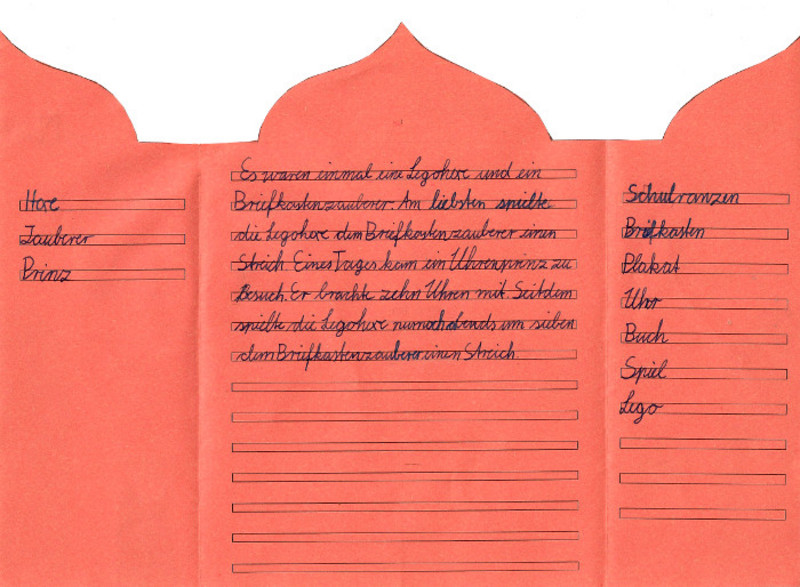 Hexe
Zauberer
Prinz
Es waren einmal eine Legohexe und ein
Briefkastenzauberer. Am liebsten spielte
die Legohexe dem Briefkastenzauberer einen
Streich. Eines Tages kam ein Uhrenprinz zu
Besuch. Er brachte zehn Uhren mit. Seitdem
spielte die Legohexe nur noch abends um sieben
dem Briefkastenzauberer einen Streich.
Schulranzen
Briefkasten
Plakat
Uhr
Buch
Spiel
Lego